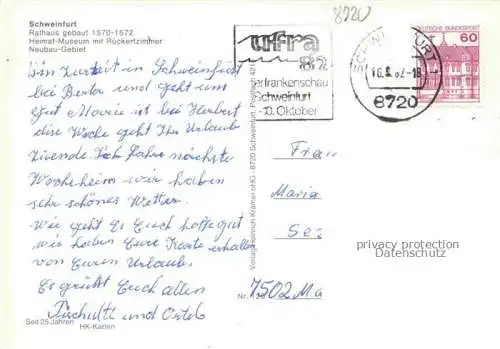 Schweinfurt
Rathaus gebaut 1570-1572
Heimat-Museum mit Rückertzimmer
Neubau-Gebiet
8720
ufra
82
erfrankenschau
Schweinfurt
-10. Oktober
SCHWEINFURT
8720
DEUTSCHE BUNDESPOST
60
bin Zurzeit in Schweinfurt
bei Berta und geht uns
gut Marie ist bei Herbert
die Woche geht Ihr Urlaub
zuende. Ich fahre nächste
Woche heim wir haben
sehr schönes Wetter.
Wie geht Es Euch hoffe gut
wir haben Eure Karte erhalten
von Euren Urlaub.
Es grüßt Euch allen
und
Frau
Maria
7502 Ma
privacy protection
Datenschutz
Seit 25 Jahren HK-Karten